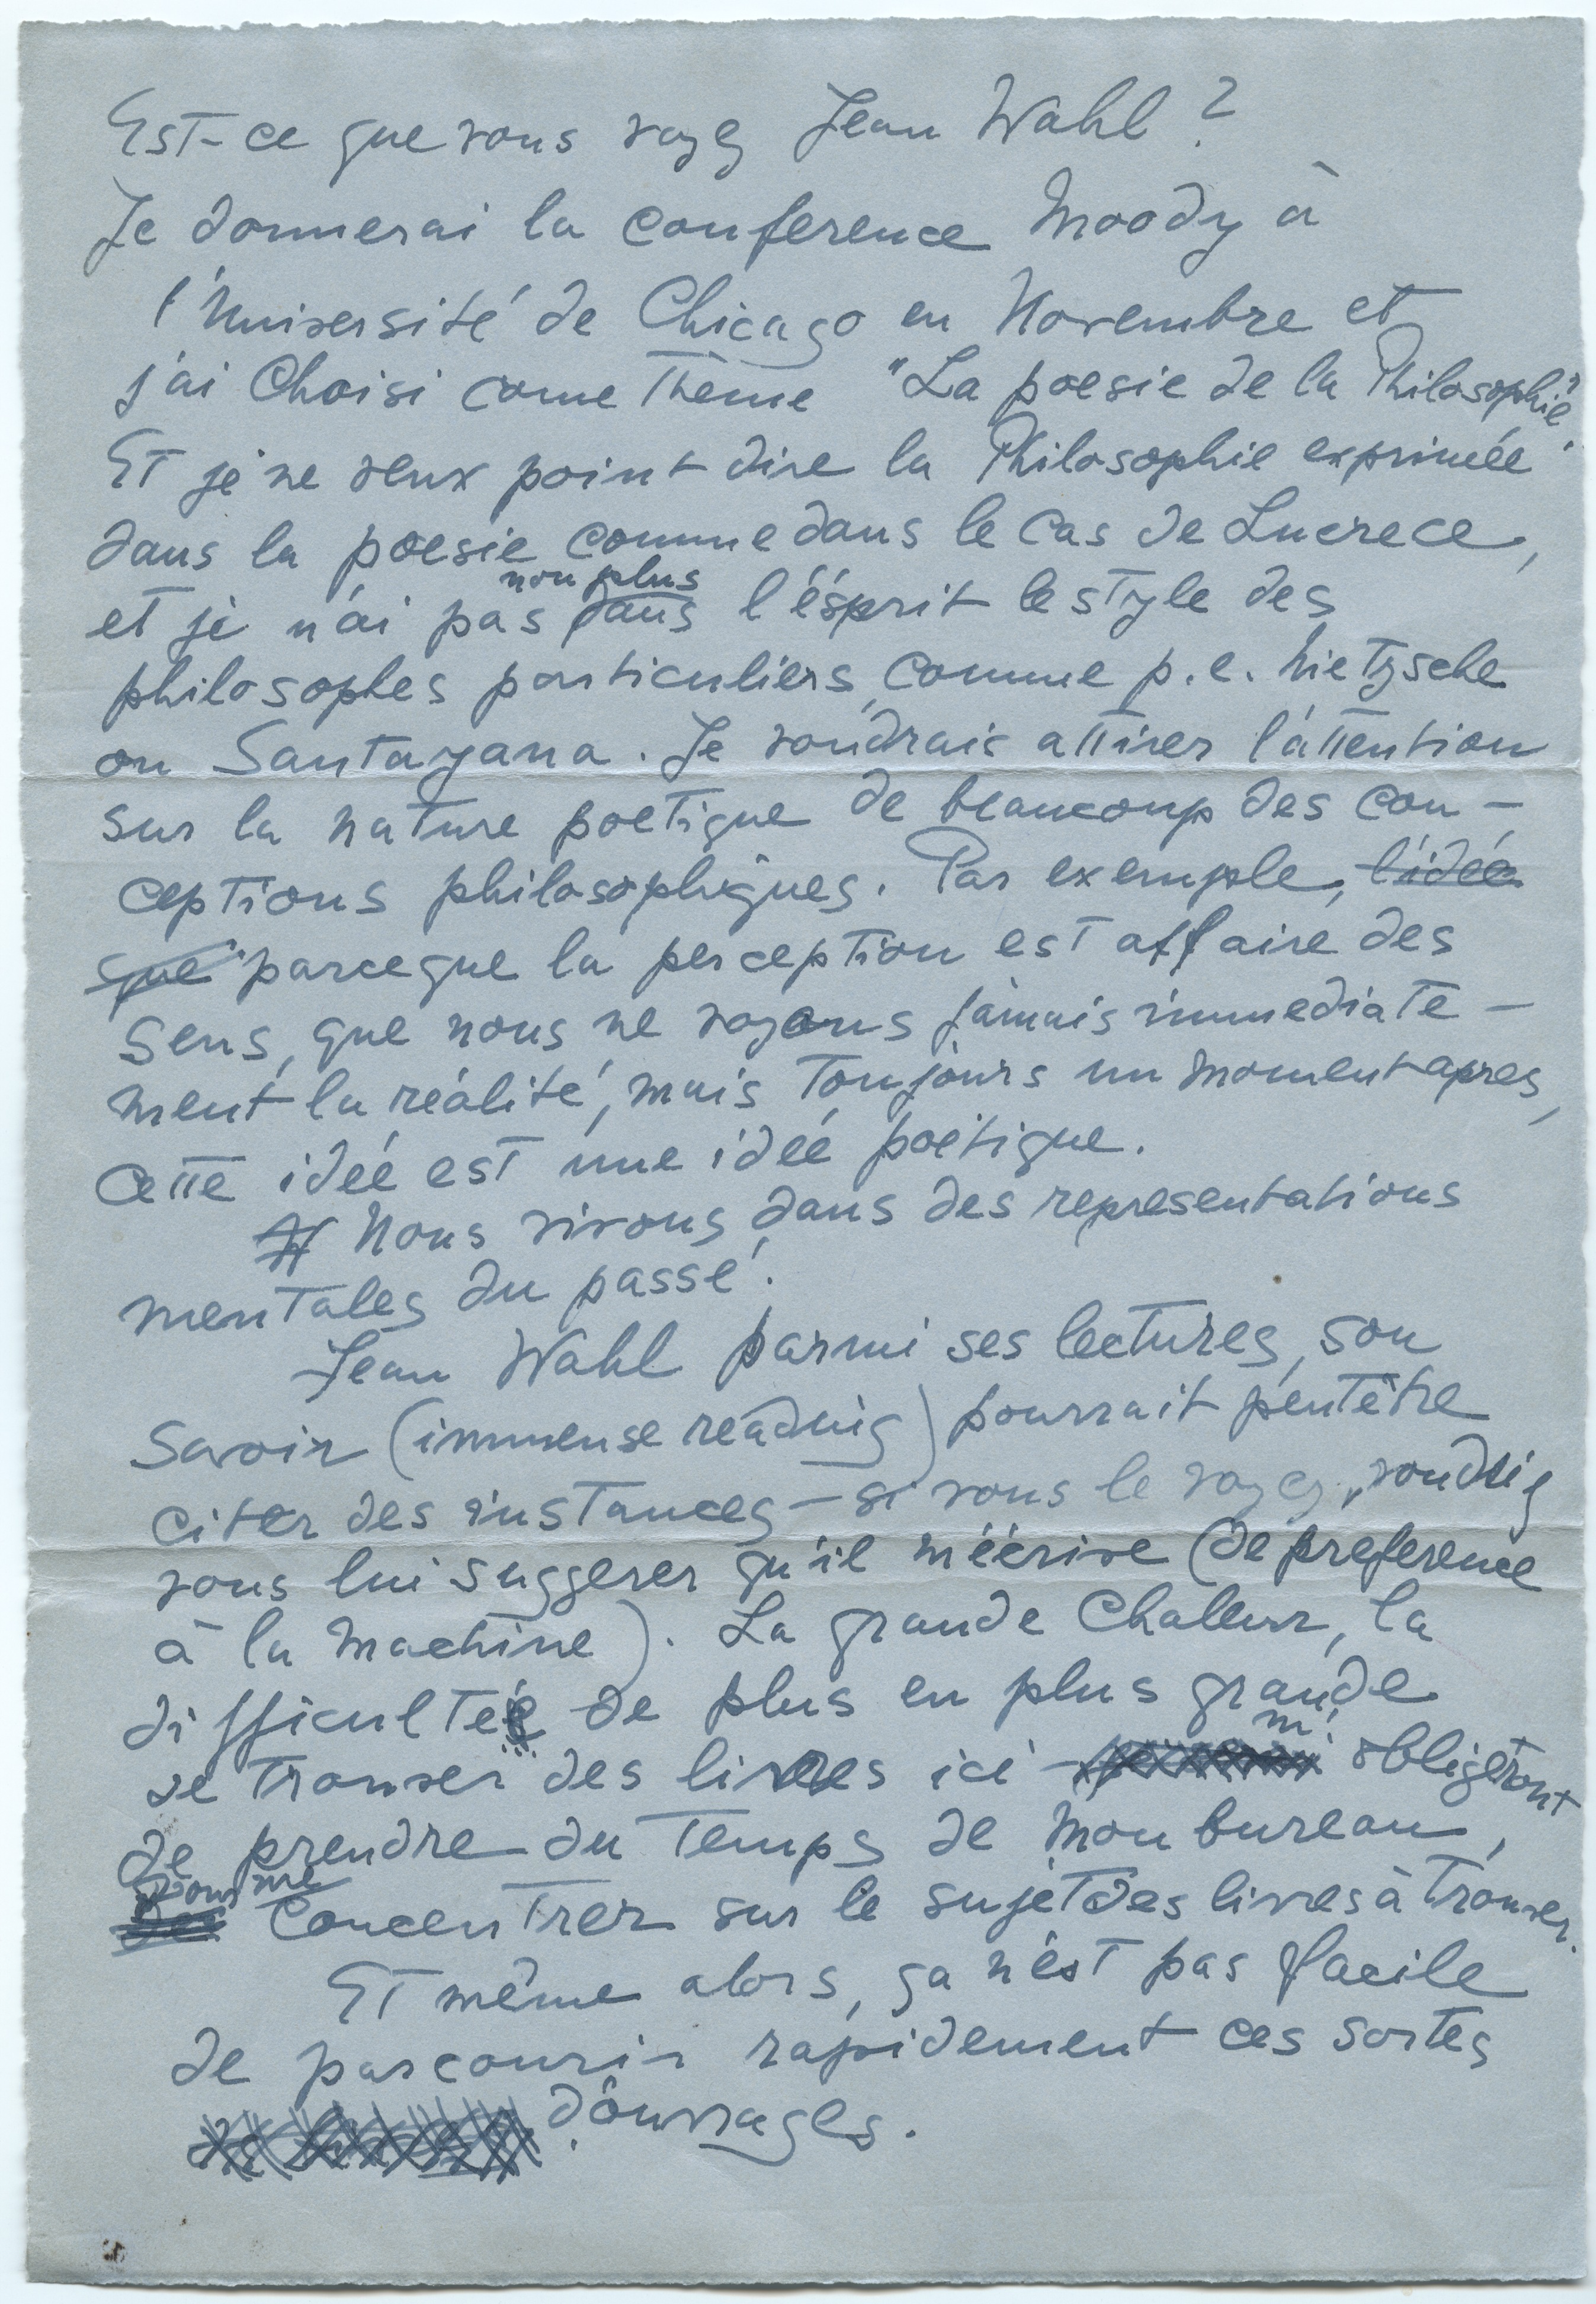 Est-ce que vous voyez Jean Wahl ?
Je donnerai la conference Moody à
l'Université de Chicago en Novembre et
j'ai Choisi come Thème "La poesie de la Philosophie".
Et je ne veux point dire la Philosophie exprimée
dans la poesie comme dans le cas de Lucrece,
et je n'ai pas non plus dans l'ésprit le style des
philosophes particuliers, comme p.e. Nietzsche
ou Santayana. Je voudrais attirer l'attention
sur la nature poetique de beaucoup des con-
ceptions philosophiques. Par exemple, l'idée
que parceque la perception est affaire des
sens, que nous ne voyons jamais immediate-
ment la réalité, mais Toujours un moment apres,
cette idée est une idée poétique.
Nous vivons dans des representations
mentales du passé.
Jean Wahl parmi ses lectures, son
savoir (immense reading) pourrait peutêtre
citer des instances - si vous le voyez, voudriez
vous lui suggerer qu'il m'écrive (de preference
à la machine). La grande Chaleur, la
difficulté de plus en plus grande
de trouver des livres ici m'obligeront
de prendre du Temps de mon bureau,
pour me concentrer sur le sujet des livres à Trouver.
Et même alors, ça n'est pas facile
de parcourir rapidement ces sortes
d'ouvrages.